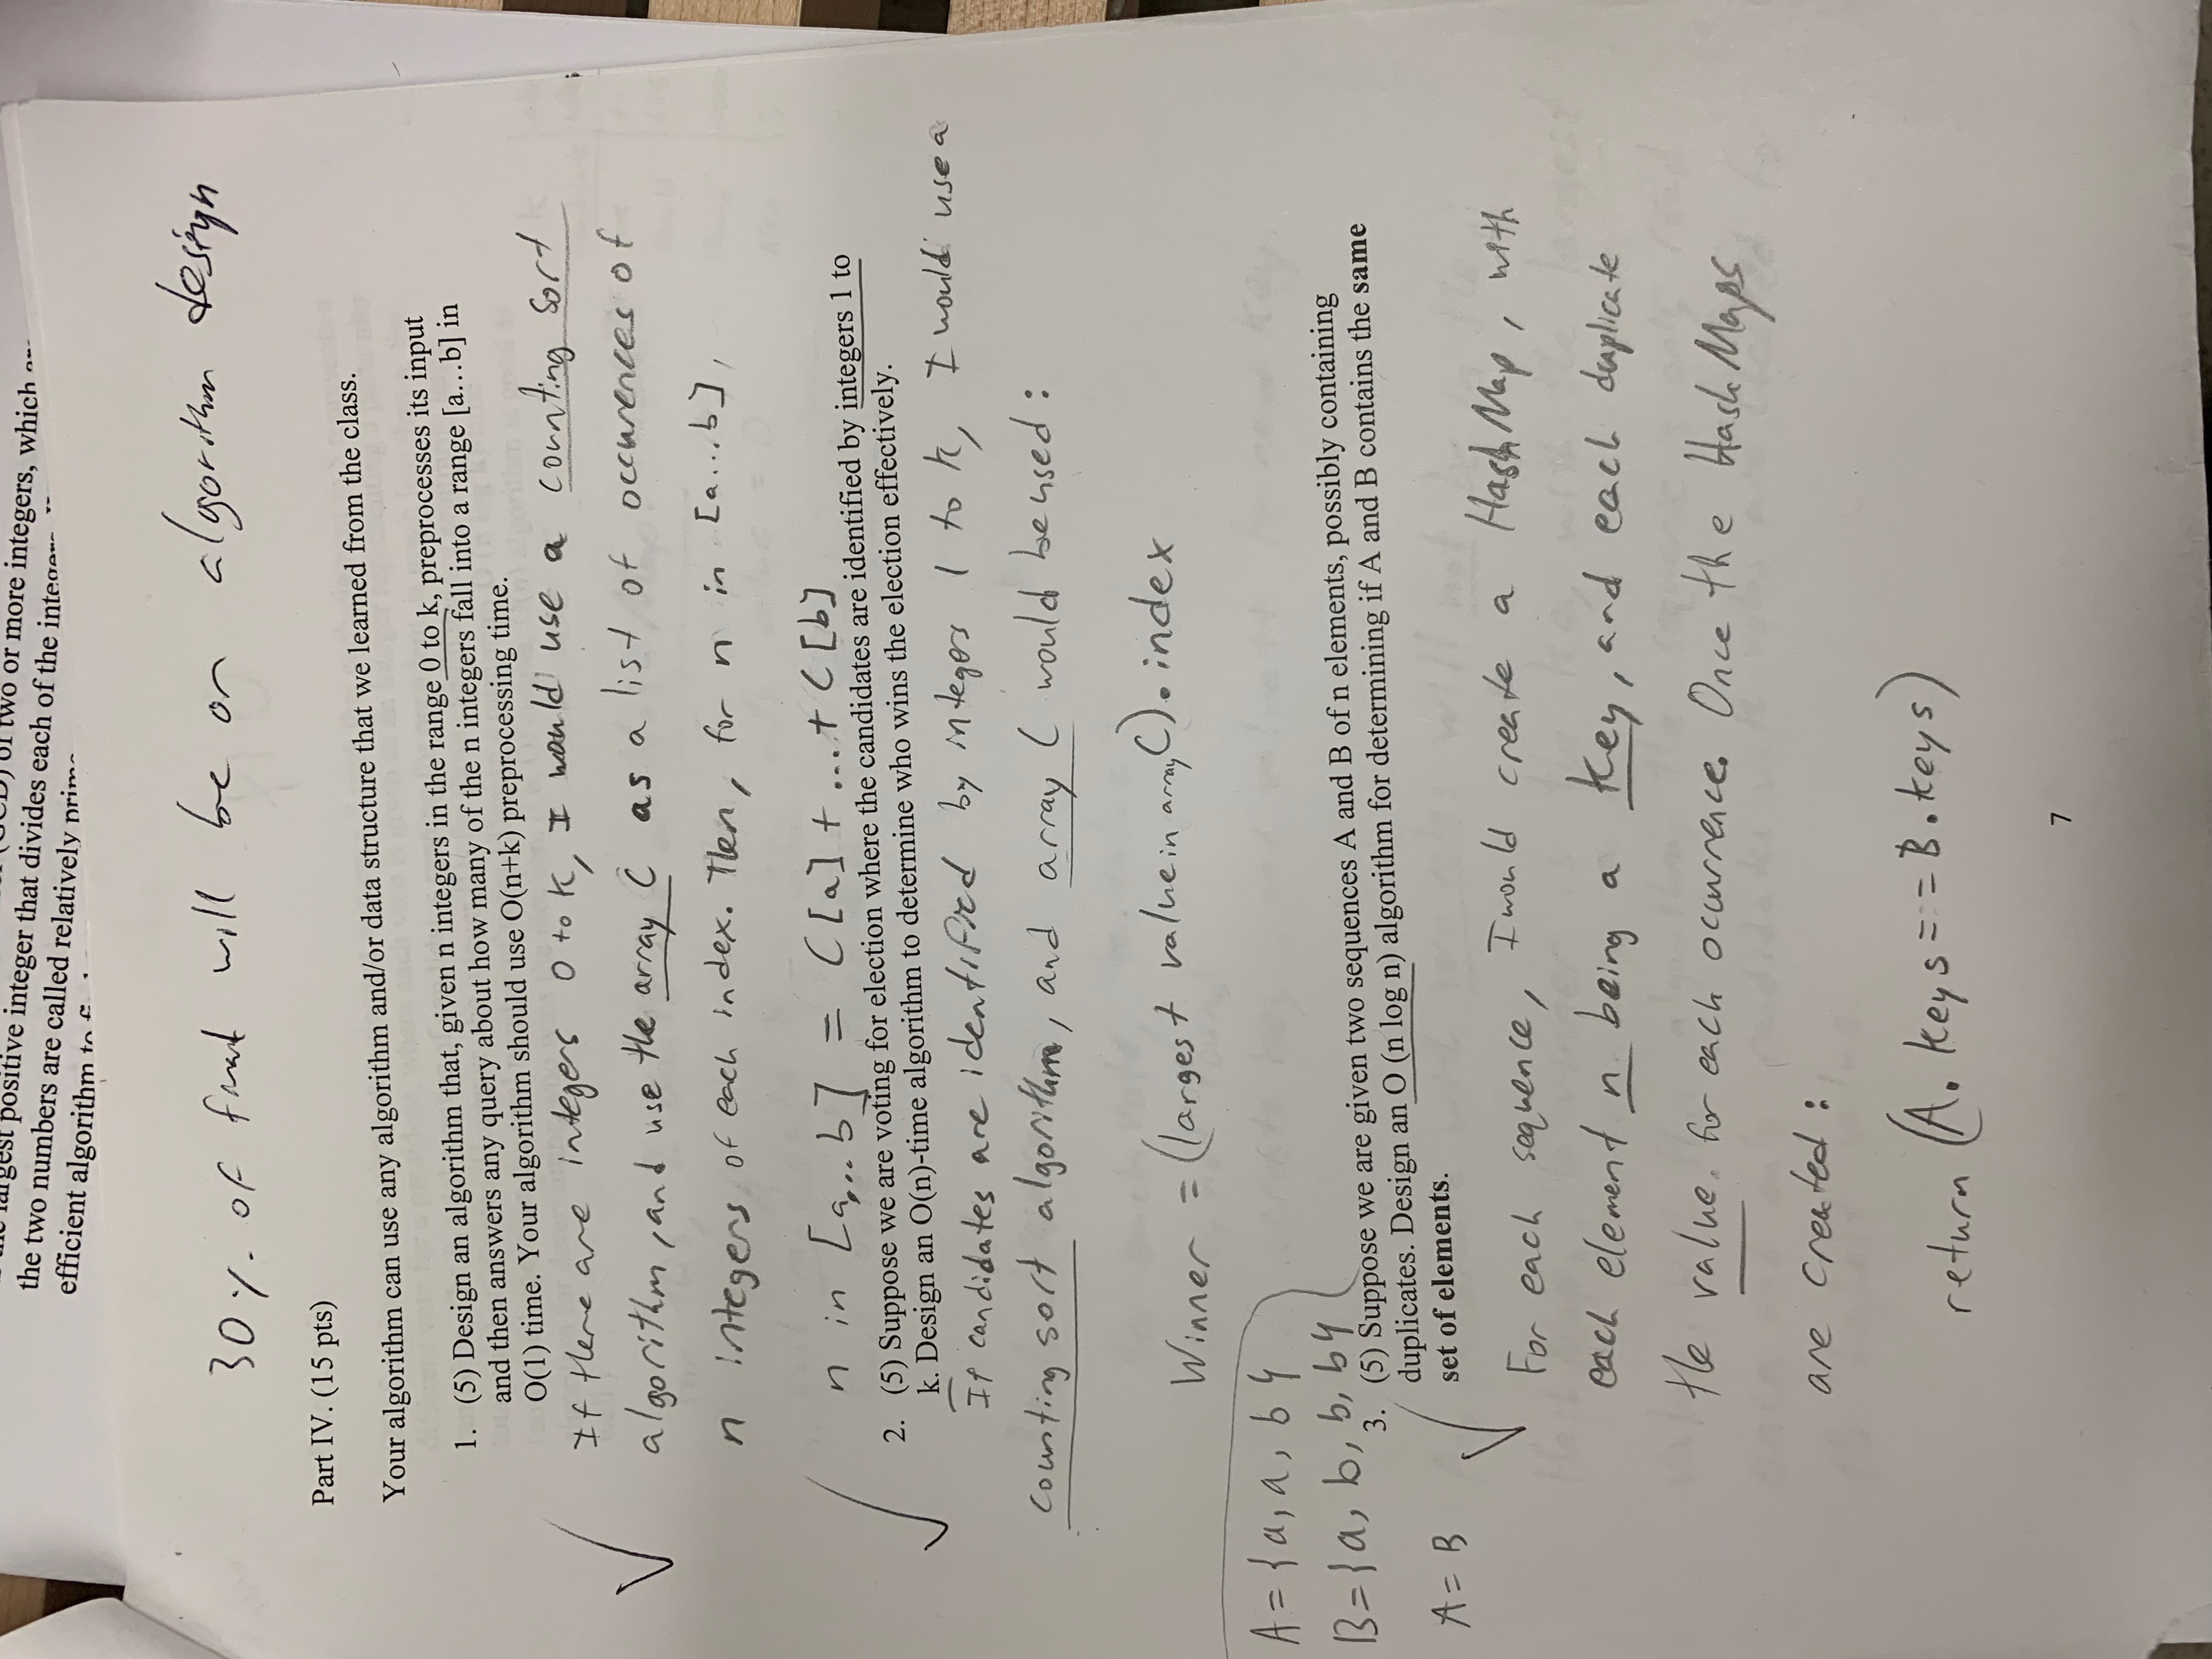 largest positive integer that divides each of the
of two or more integers, which
the two numbers are called relatively
efficient algorithm to
30%. of final will be on algorithm design
Part IV. (15 pts)
Your algorithm can use any algorithm and/or data structure that we learned from the class.
1. (5) Design an algorithm that, given n integers in the range 0 to k, preprocesses its input
and then answers any query about how many of the n integers fall into a range [a…b] in
O(1) time. Your algorithm should use O(n+k) preprocessing time.
If there are integers 0 to k, I would use a counting sort
algorithm, and use the array C as a list of occurences of
n integers of each index. Then, for n in [a...b],
n in [a,..b] = C[a] + ...+ C[b]
2. (5) Suppose we are voting for election where the candidates are identified by integers 1 to
k. Design an O(n)-time algorithm to determine who wins the election effectively.
If candidates are identified by integers 1 to k, I would use a
counting sort algorithm, and array C would be used:
Winner = (largest value in array C).index
A={a, a, b}
B={a, b, b, b}
A= B
3. (5) Suppose we are given two sequences A and B of n elements, possibly containing
duplicates. Design an O (n log n) algorithm for determining if A and B contains the same
set of elements.
For each sequence, I would create a HashMap, with
each element n being a key, and each duplicate
the value for each occurrence. Once the HashMaps
are created:
return (A.keys==B.keys)
7